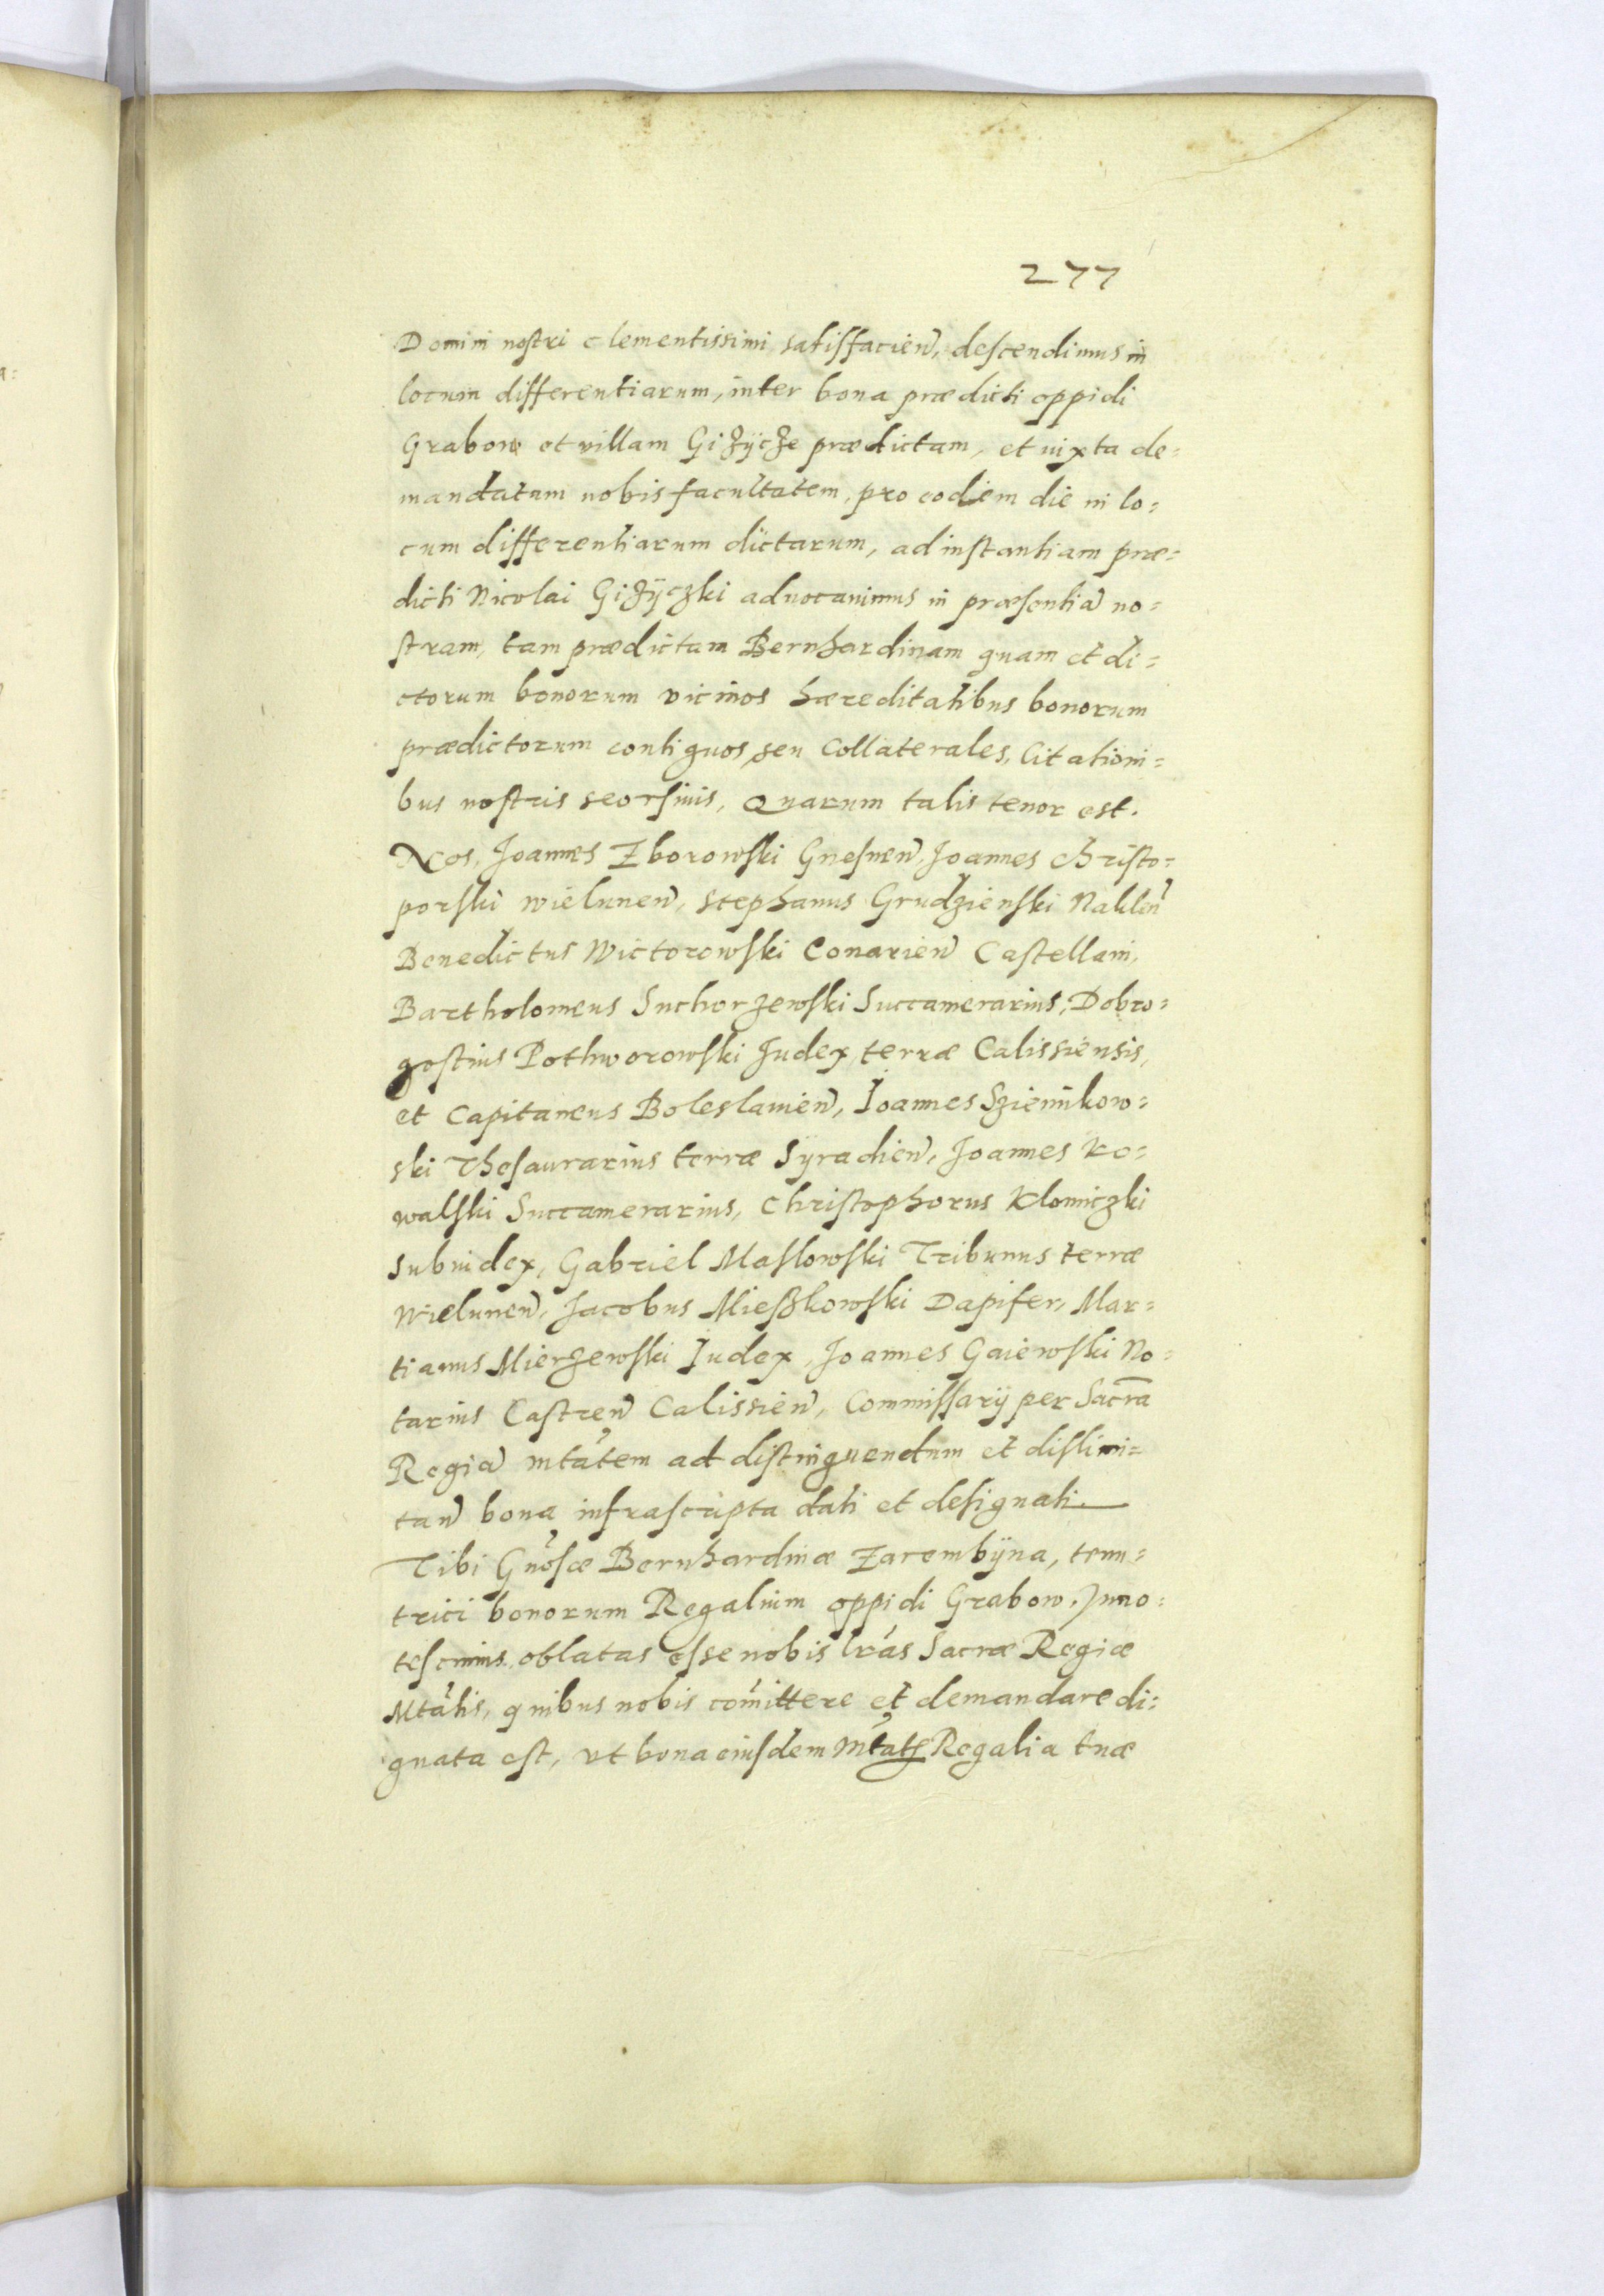 277
Domini nostri clementissimi satisfacien, descendimus in
locum differentiarum, inter bona prædicti oppidi
Grabow et villam Giżÿcże prædictam, et iuxta de=
mandatam nobis facultatem, pro eodem die in lo=
cum differentiarum dictarum, ad instantiam præ=
dicti Nicolai Giżÿczki aduocauimus in præsentiā no=
stram, tam prædictam Bernhardinam quam et di=
ctorum bonorum vicinos hæreditatibus bonorum
prædictorum contiguos, seu Collaterales, Citationi=
bus nostris seorsiuis, Quarum talis tenor est.
Nos, Joannes Zborowski Gnesnen, Joannes Christo=
porski Wielunen, Stephanus Grudzienski Naklen
Benedictus Wictorowski Conarien Castellani,
Bartholomeus Suchorzewski Succamerarius, Dobro=
gostius Pothworowski Judex terræ Calissiensis,
et Capitaneus Boleslauien, Ioannes Szienikow=
ski Thesaurarius terræ Syradien, Joannes Ko=
walski Succamerarius, Christophorus Klomiczki
Subiudex, Gabriel Maslowski Tribunus terræ
Wielunen, Jacobus Mießkowski Dapifer, Mar=
tianus Mierzewski Iudex, Joannes Gaiewski No=
tarius Castren Calissien, Commissarij per Sacrā
Regiā mtatem ad distinguendum et dislimi=
tan bona infrascripta dati et designati.
Tibi Gnosæ Bernhardinæ Zarembÿna, tenu=
trici bonorum Regalium oppidi Grabow. Inno=
tescimus oblatas esse nobis lras Sacræ Regiæ
Mtatis, quibus nobis comittere et demandare di=
gnata est, vt bona eiusdem Mtatis Regalia tuæ